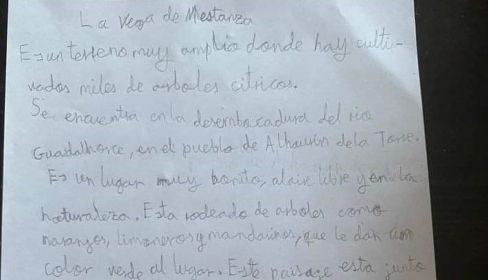 La Vega de Mestanza
Es un terreno muy amplio donde hay culti-
vados miles de arboles citricos.
Se encuentra en la desembocadura del rio
Guadalhorce, en el pueblo de Alhaurin de la Torre.
Es un lugar muy bonito, al aire libre y en la
naturaleza. Esta rodeado de arboles como
naranjos, limoneros y mandarinos, que le dan un
color verde al lugar. Este paisaje esta junto